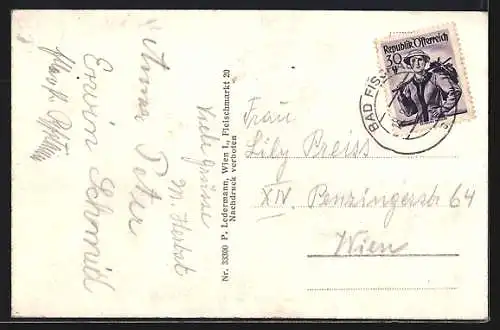 Erwin Schmid
Anna Peter
Viele Grüsse
M. Herbst
Nr. 33300 P. Ledermann, Wien I., Fleischmarkt 20
Nachdruck verboten
Republik Österreich
30
BAD
Frau
Lily Preiss
XIV. Penzingerstr 64
Wien